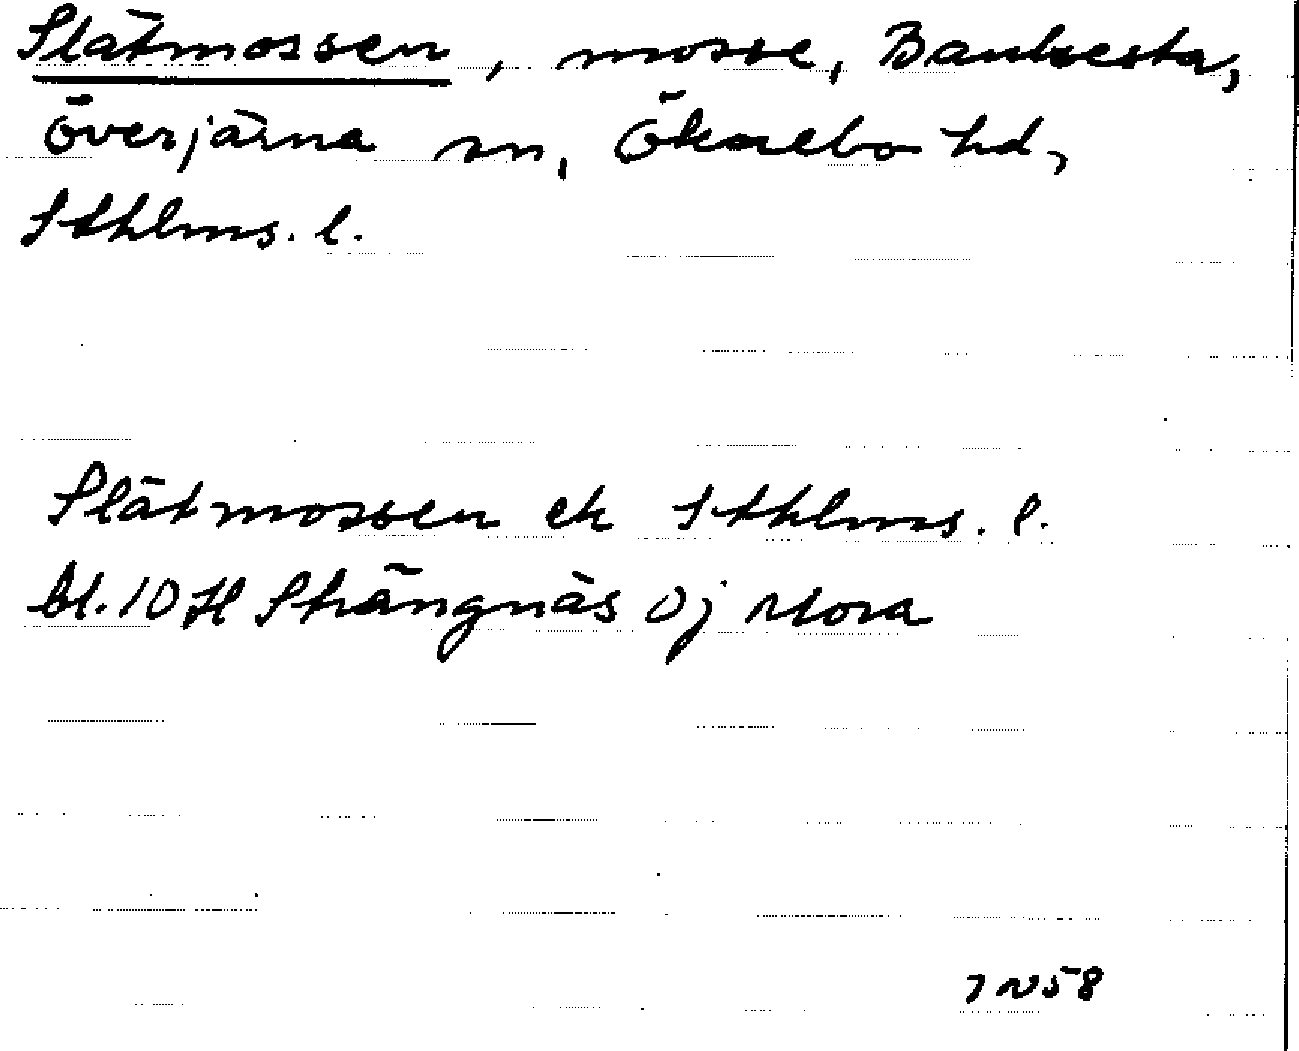 Slätmossen, mosse, Bankesta,
Överjärna sn, Öknebo hd,
Sthlms. l.
Slätmossen ek Sthlms. l.
bl. 10 H Strängnäs 0j Mora